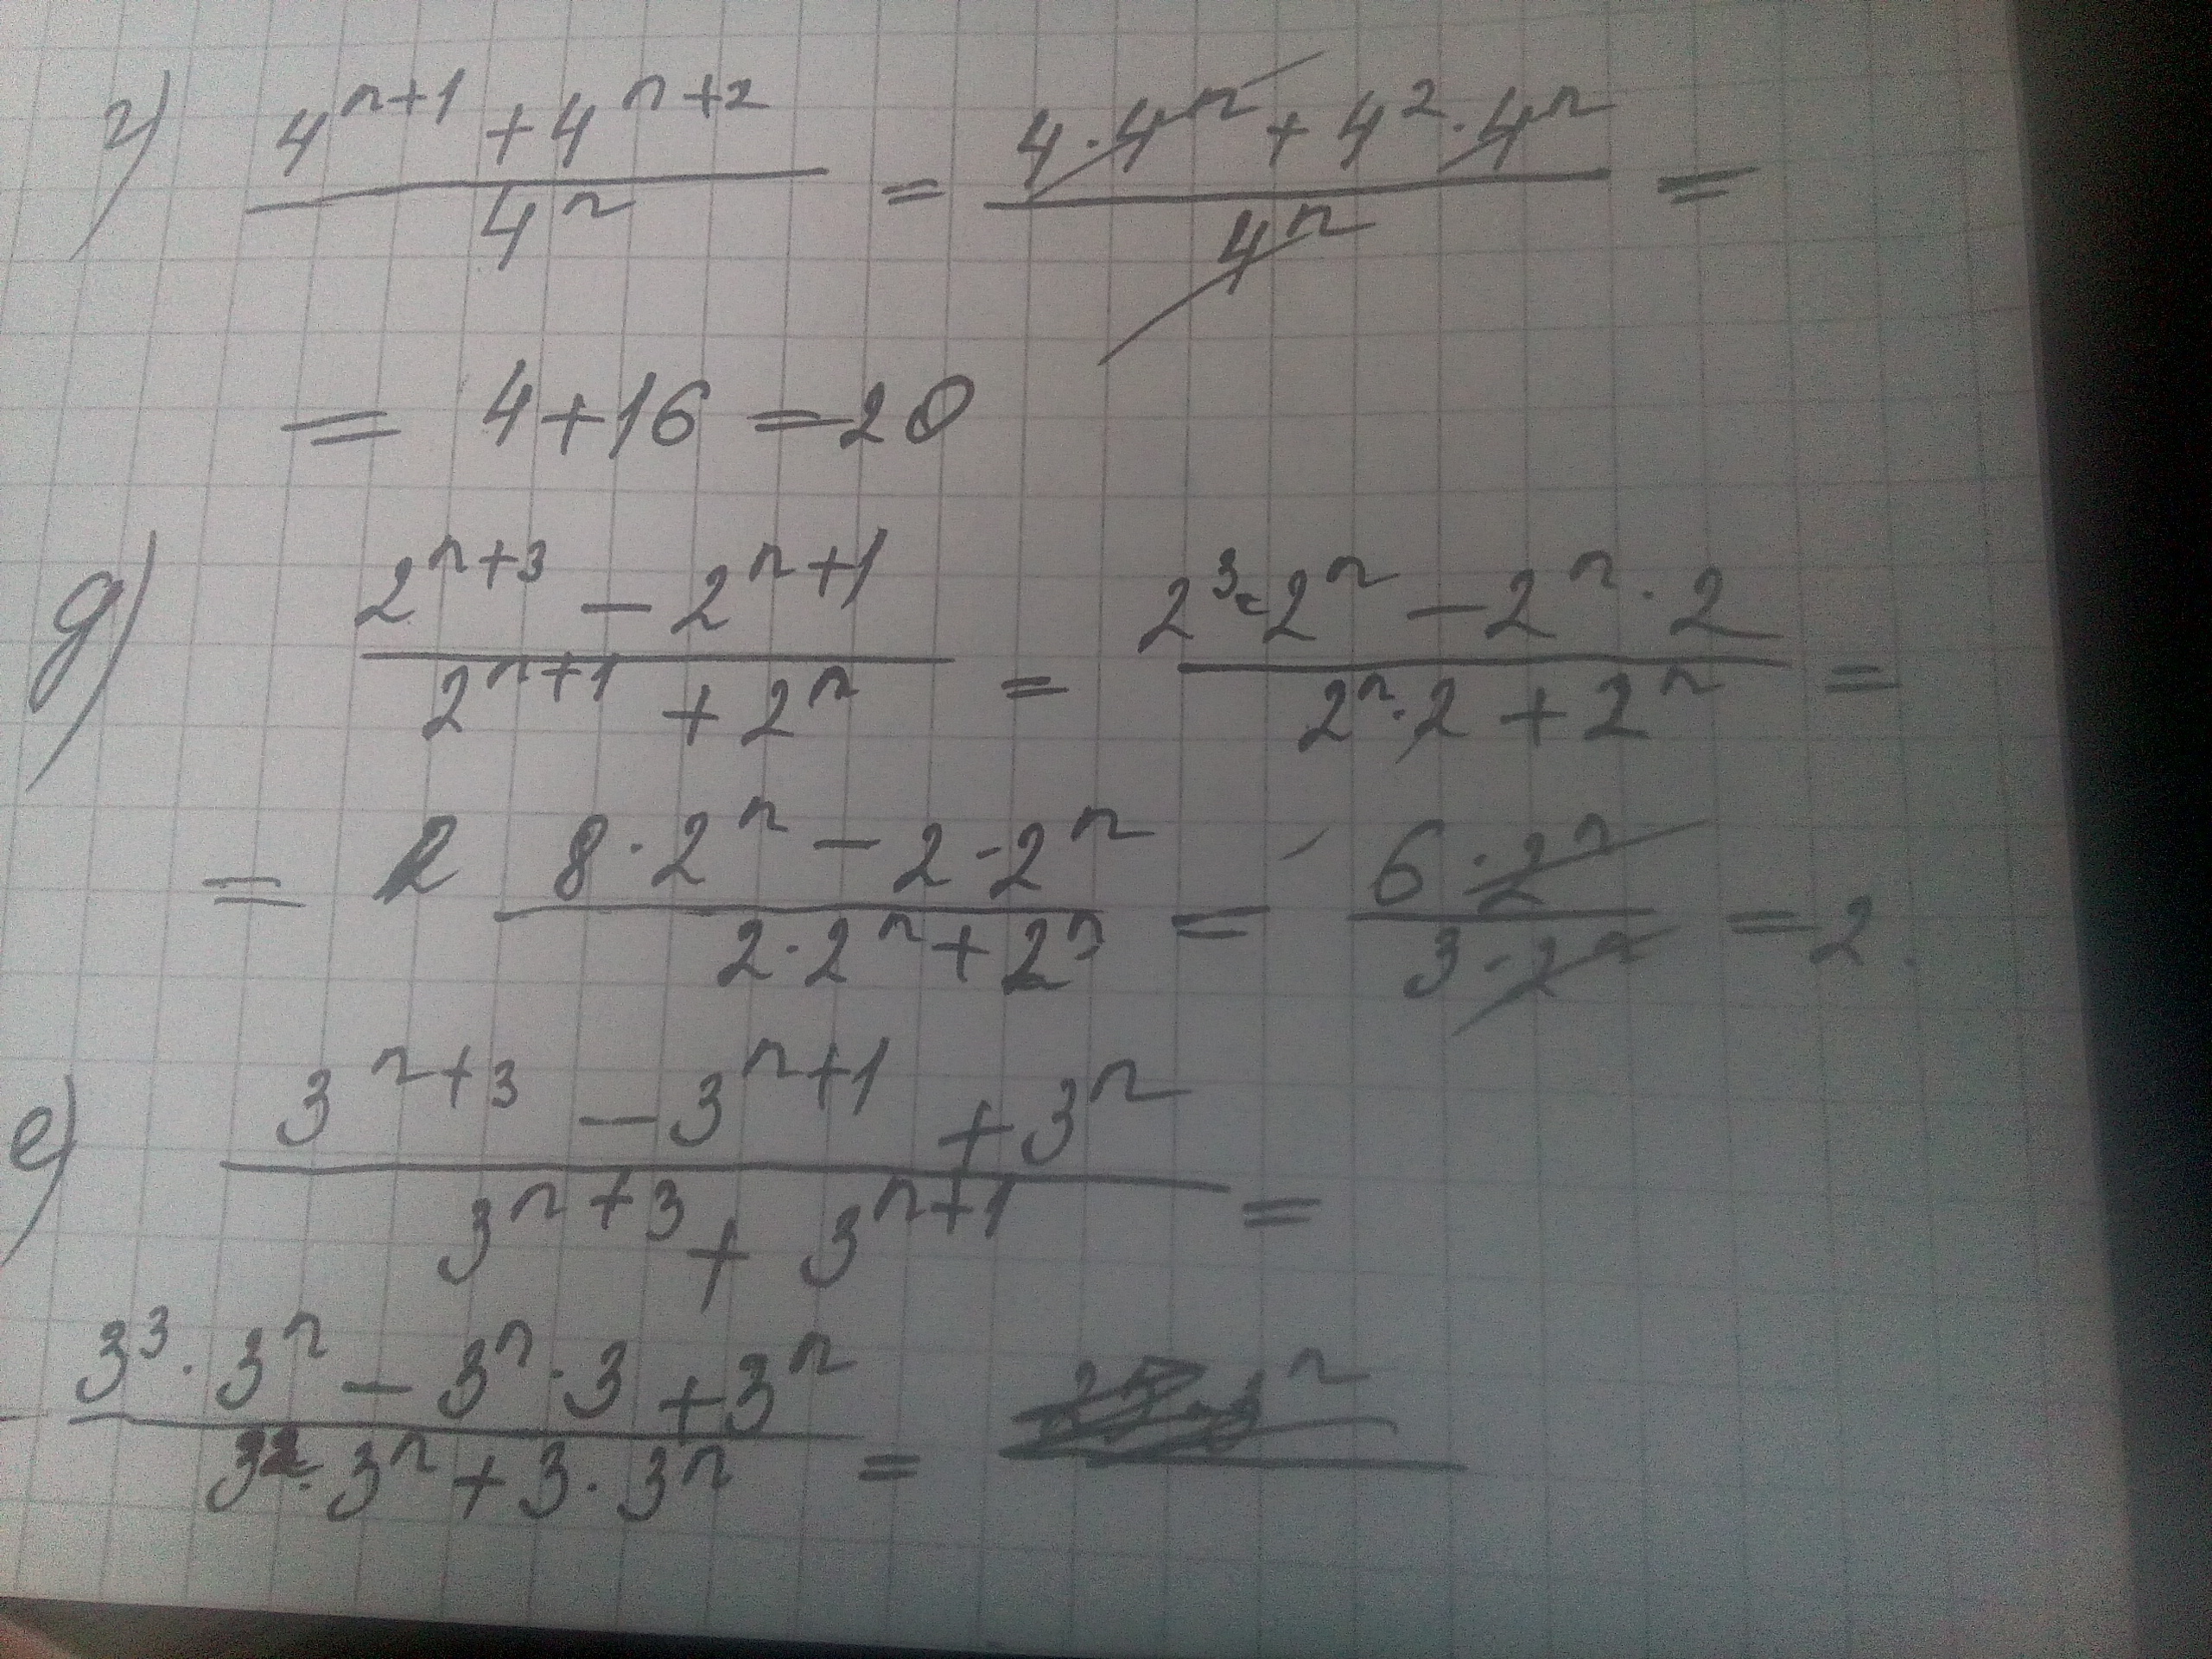 г) (4^(n+1) + 4^(n+2)) / 4^n = (4 · 4^n + 4^2 · 4^n) / 4^n =
= 4 + 16 = 20
д) (2^(n+3) - 2^(n+1)) / (2^(n+1) + 2^n) = (2^3 · 2^n - 2^n · 2) / (2^n · 2 + 2^n) =
= (8 · 2^n - 2 · 2^n) / (2 · 2^n + 2^n) = (6 · 2^n) / (3 · 2^n) = 2.
е) (3^(n+3) - 3^(n+1) + 3^n) / (3^(n+3) + 3^(n+1)) =
(3^3 · 3^n - 3^n · 3 + 3^n) / (3^2 · 3^n + 3 · 3^n) =